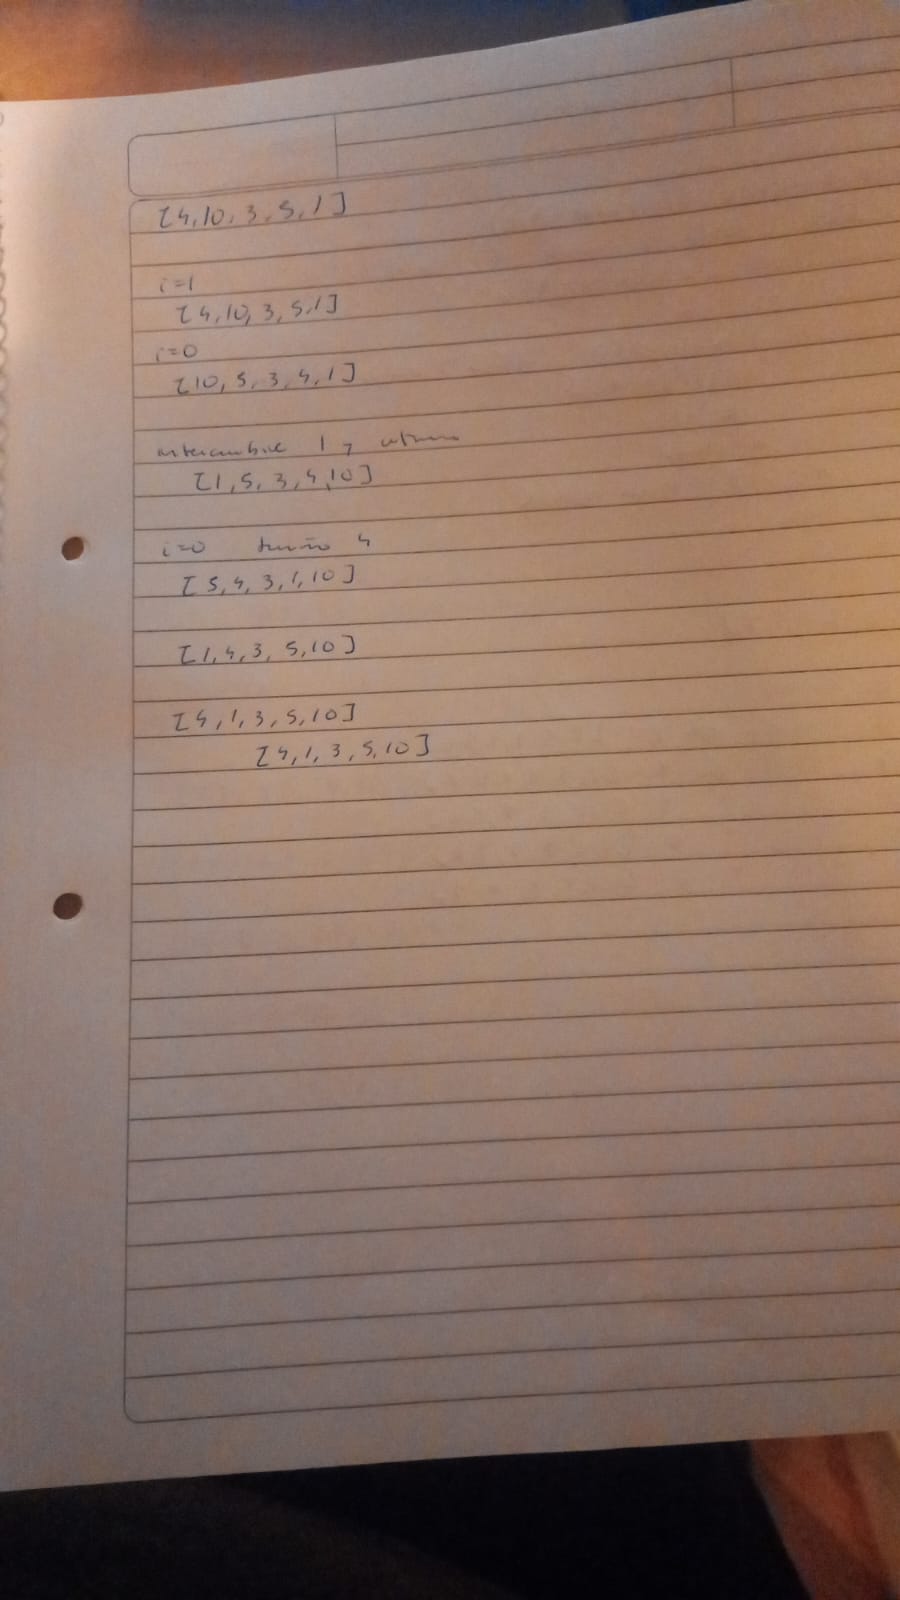 [4,10,3,5,1]
i=1
[4,10,3,5,1]
i=0
[10,5,3,4,1]
intercambie 1 y ultimo
[1,5,3,4,10]
i=0 tamaño 4
[5,4,3,1,10]
[1,4,3,5,10]
[4,1,3,5,10]
[4,1,3,5,10]